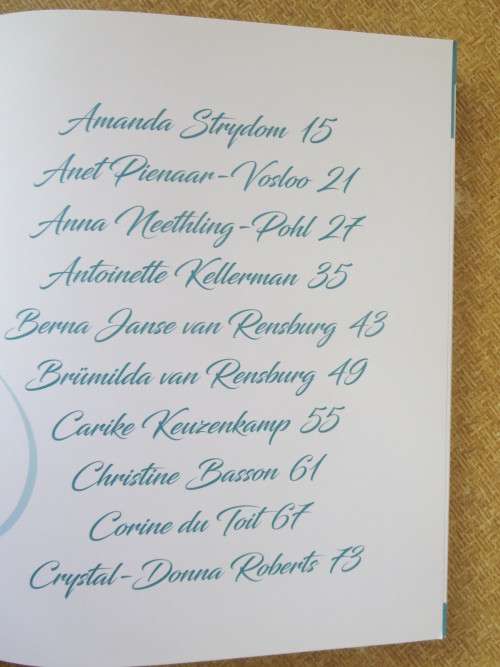 Amanda Strydom 15
Anet Pienaar-Vosloo 21
Anna Neethling-Pohl 27
Antoinette Kellerman 35
Berna Janse van Rensburg 43
Brümilda van Rensburg 49
Carike Keuzenkamp 55
Christine Basson 61
Corine du Toit 67
Crystal-Donna Roberts 73